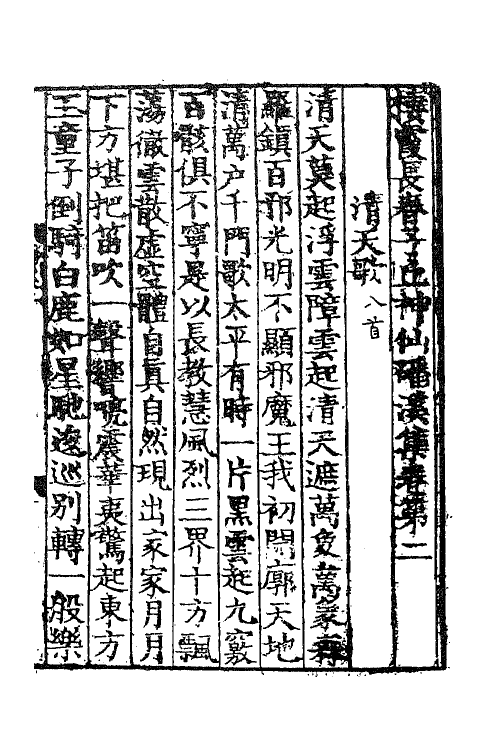 棲霞長春子丘神仙磻溪集卷第二
清天歌八首
清天莫起浮雲障雲起清天遮萬象萬象森
羅鎮百邪光明不顯邪魔王我初開廓天地
清萬户千門歌太平有時一片黑雲起九竅
百骸俱不寧是以長教慧風烈三界十方飄
蕩徹雲散虚空體自真自然現出家家月月
下方堪把笛吹一聲響喨震華夷驚起東方
三童子倒騎白鹿如星馳逡巡别轉一般樂